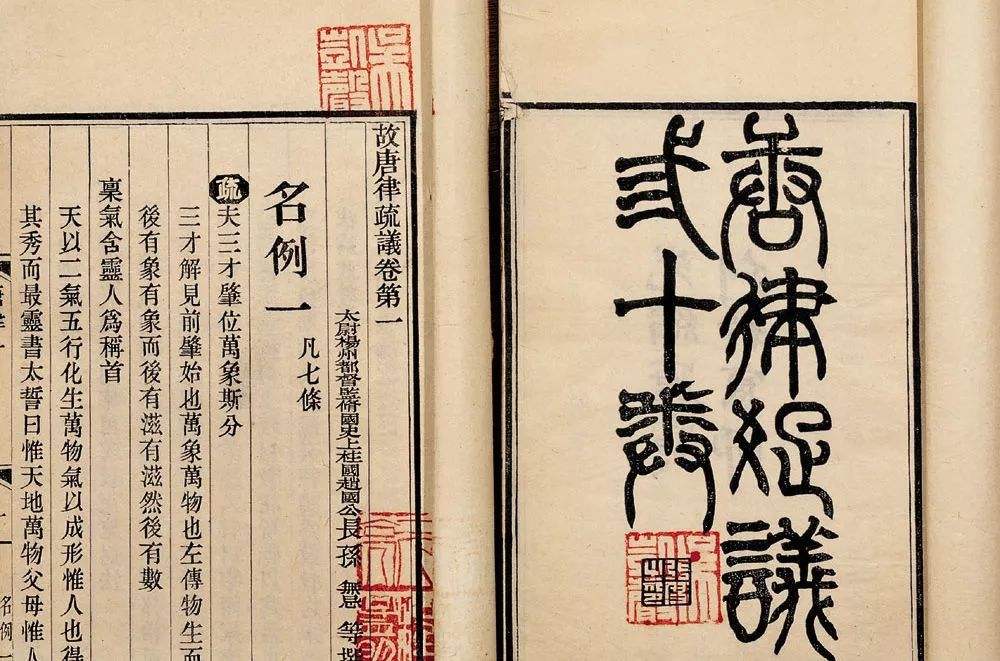 唐律疏議
弎十卷
吳凱聲
故唐律疏議卷第一
太尉楊州都督監脩國史上柱國趙國公長孫無忌等撰
名例一
凡七條
疏夫三才肇位萬象斯分
三才解見前肇始也萬象萬物也左傳物生而
後有象有象而後有滋有滋然後有數
稟氣含靈人爲稱首
天以二氣五行化生萬物氣以成形惟人也得
其秀而最靈書太誓曰惟天地萬物父母惟人
名例一
吳凱聲